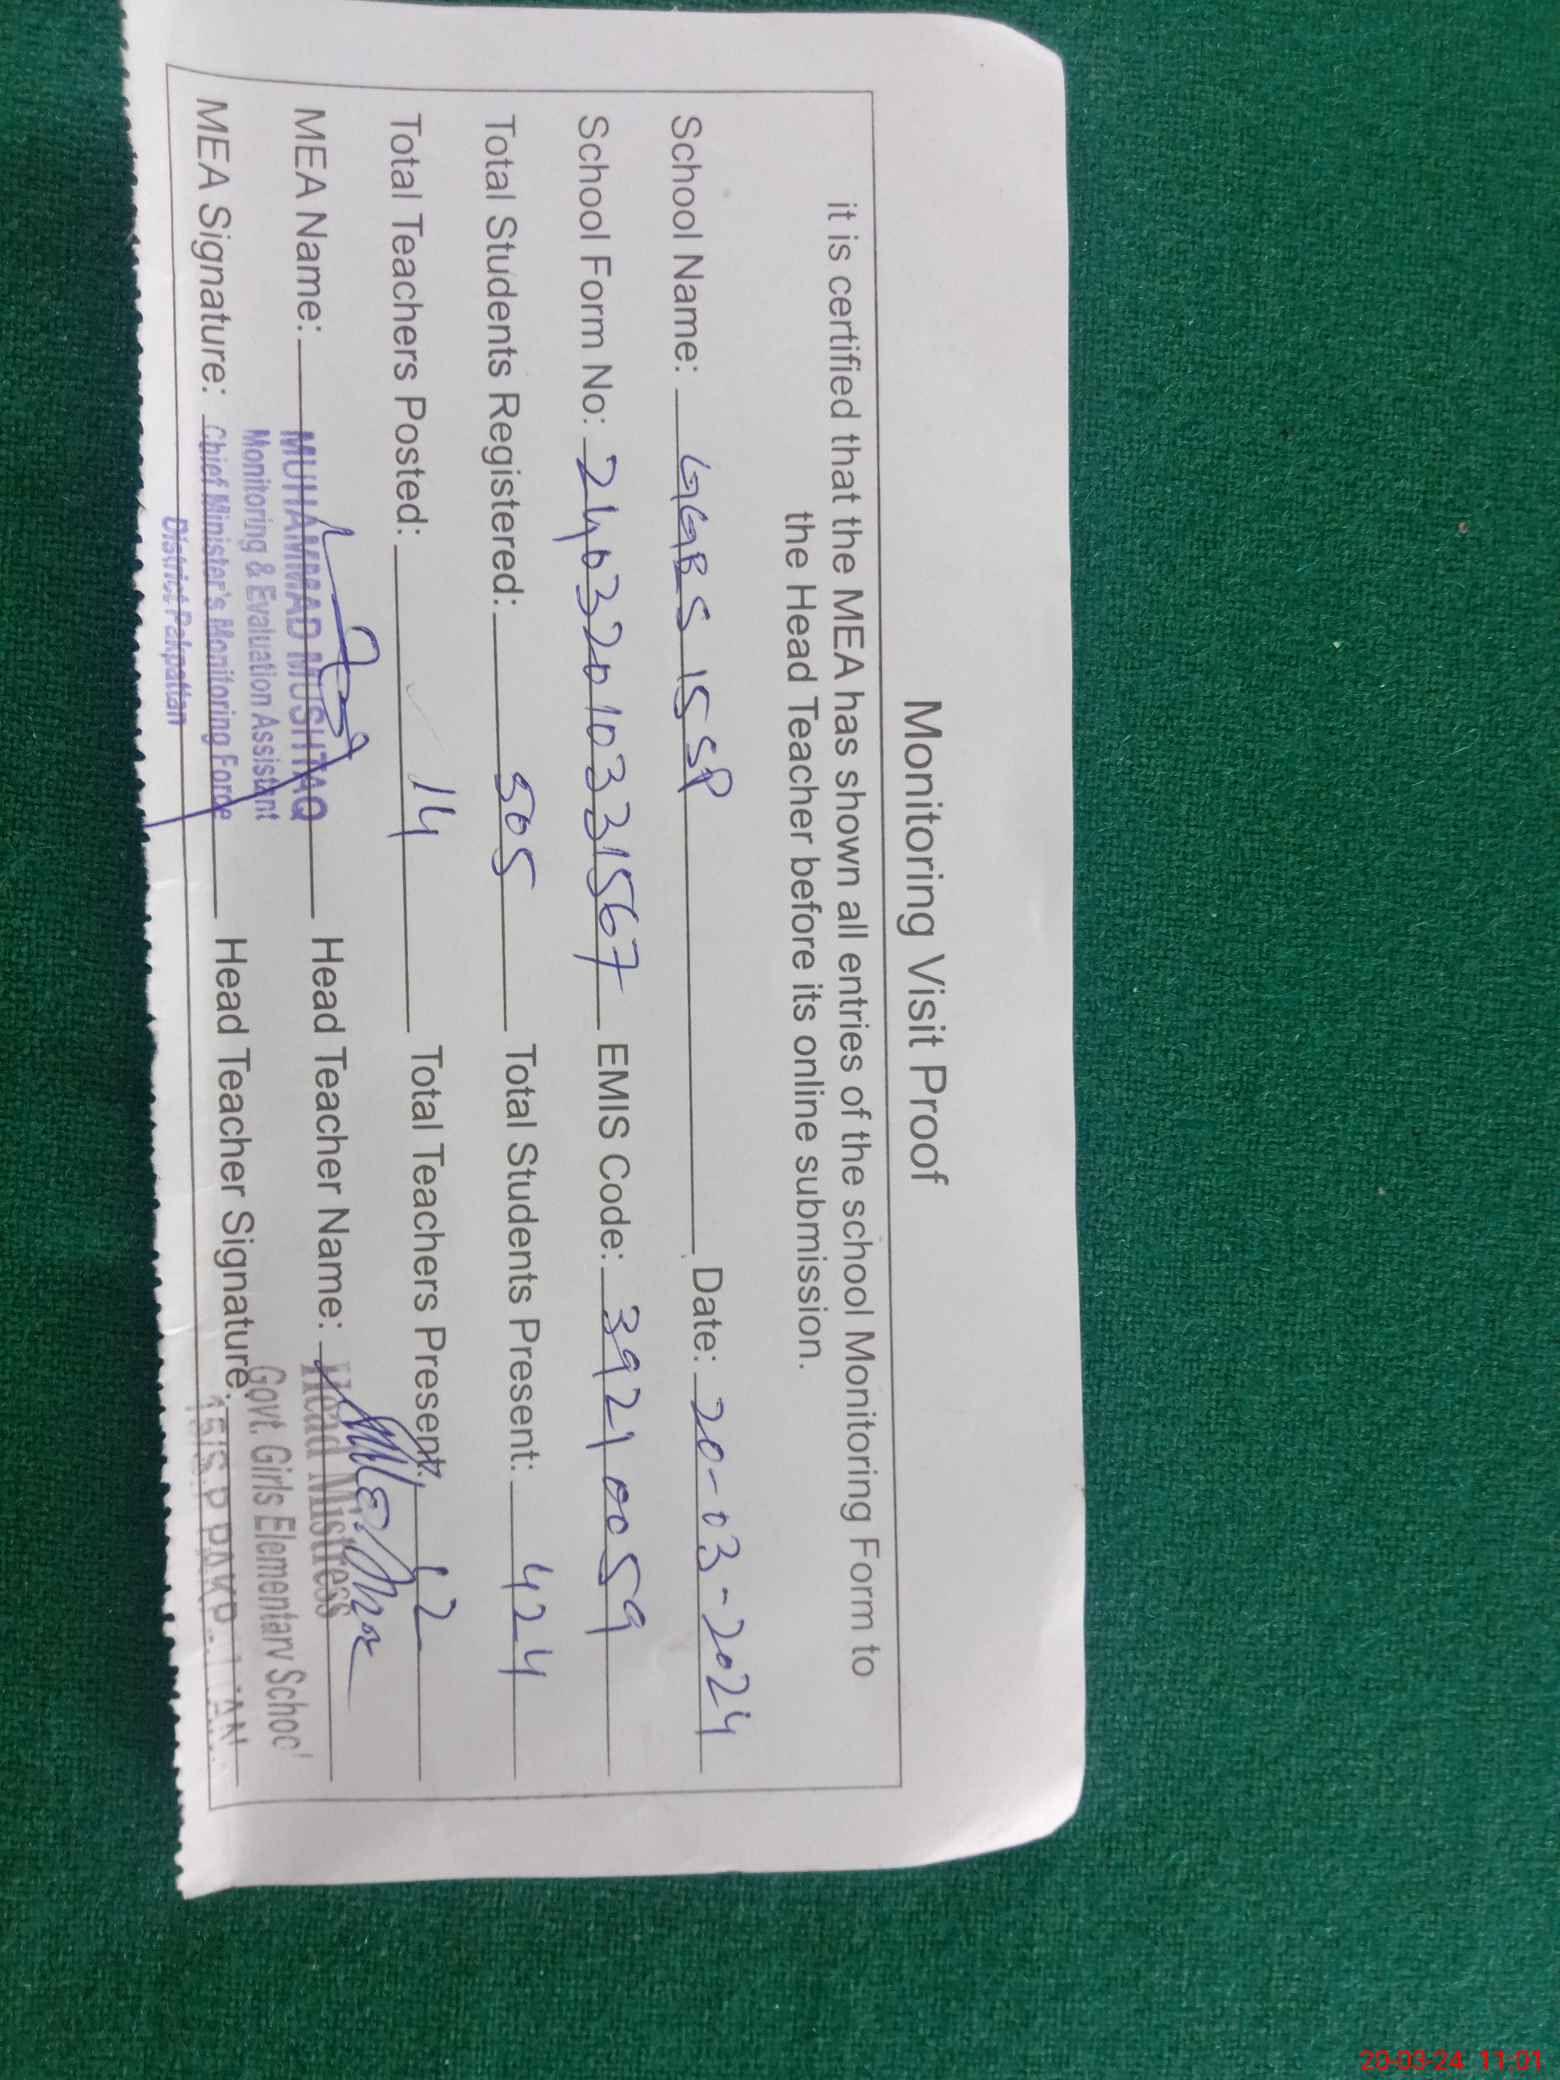 Monitoring Visit Proof
it is certified that the MEA has shown all entries of the school Monitoring Form to
the Head Teacher before its online submission.
School Name: GGES 15 SP Date: 20-03-2024
School Form No: 24032010331567 EMIS Code: 39210059
Total Students Registered: 505 Total Students Present: 424
Total Teachers Posted: 14 Total Teachers Present: 12
MEA Name: MUHAMMAD MUSHTAQ Head Teacher Name: Head Mistress
Monitoring & Evaluation Assistant Govt. Girls Elementary School
MEA Signature: Chief Minister's Monitoring Force Head Teacher Signature: 15/S.P
District Pakpattan
20-03-24 11:01